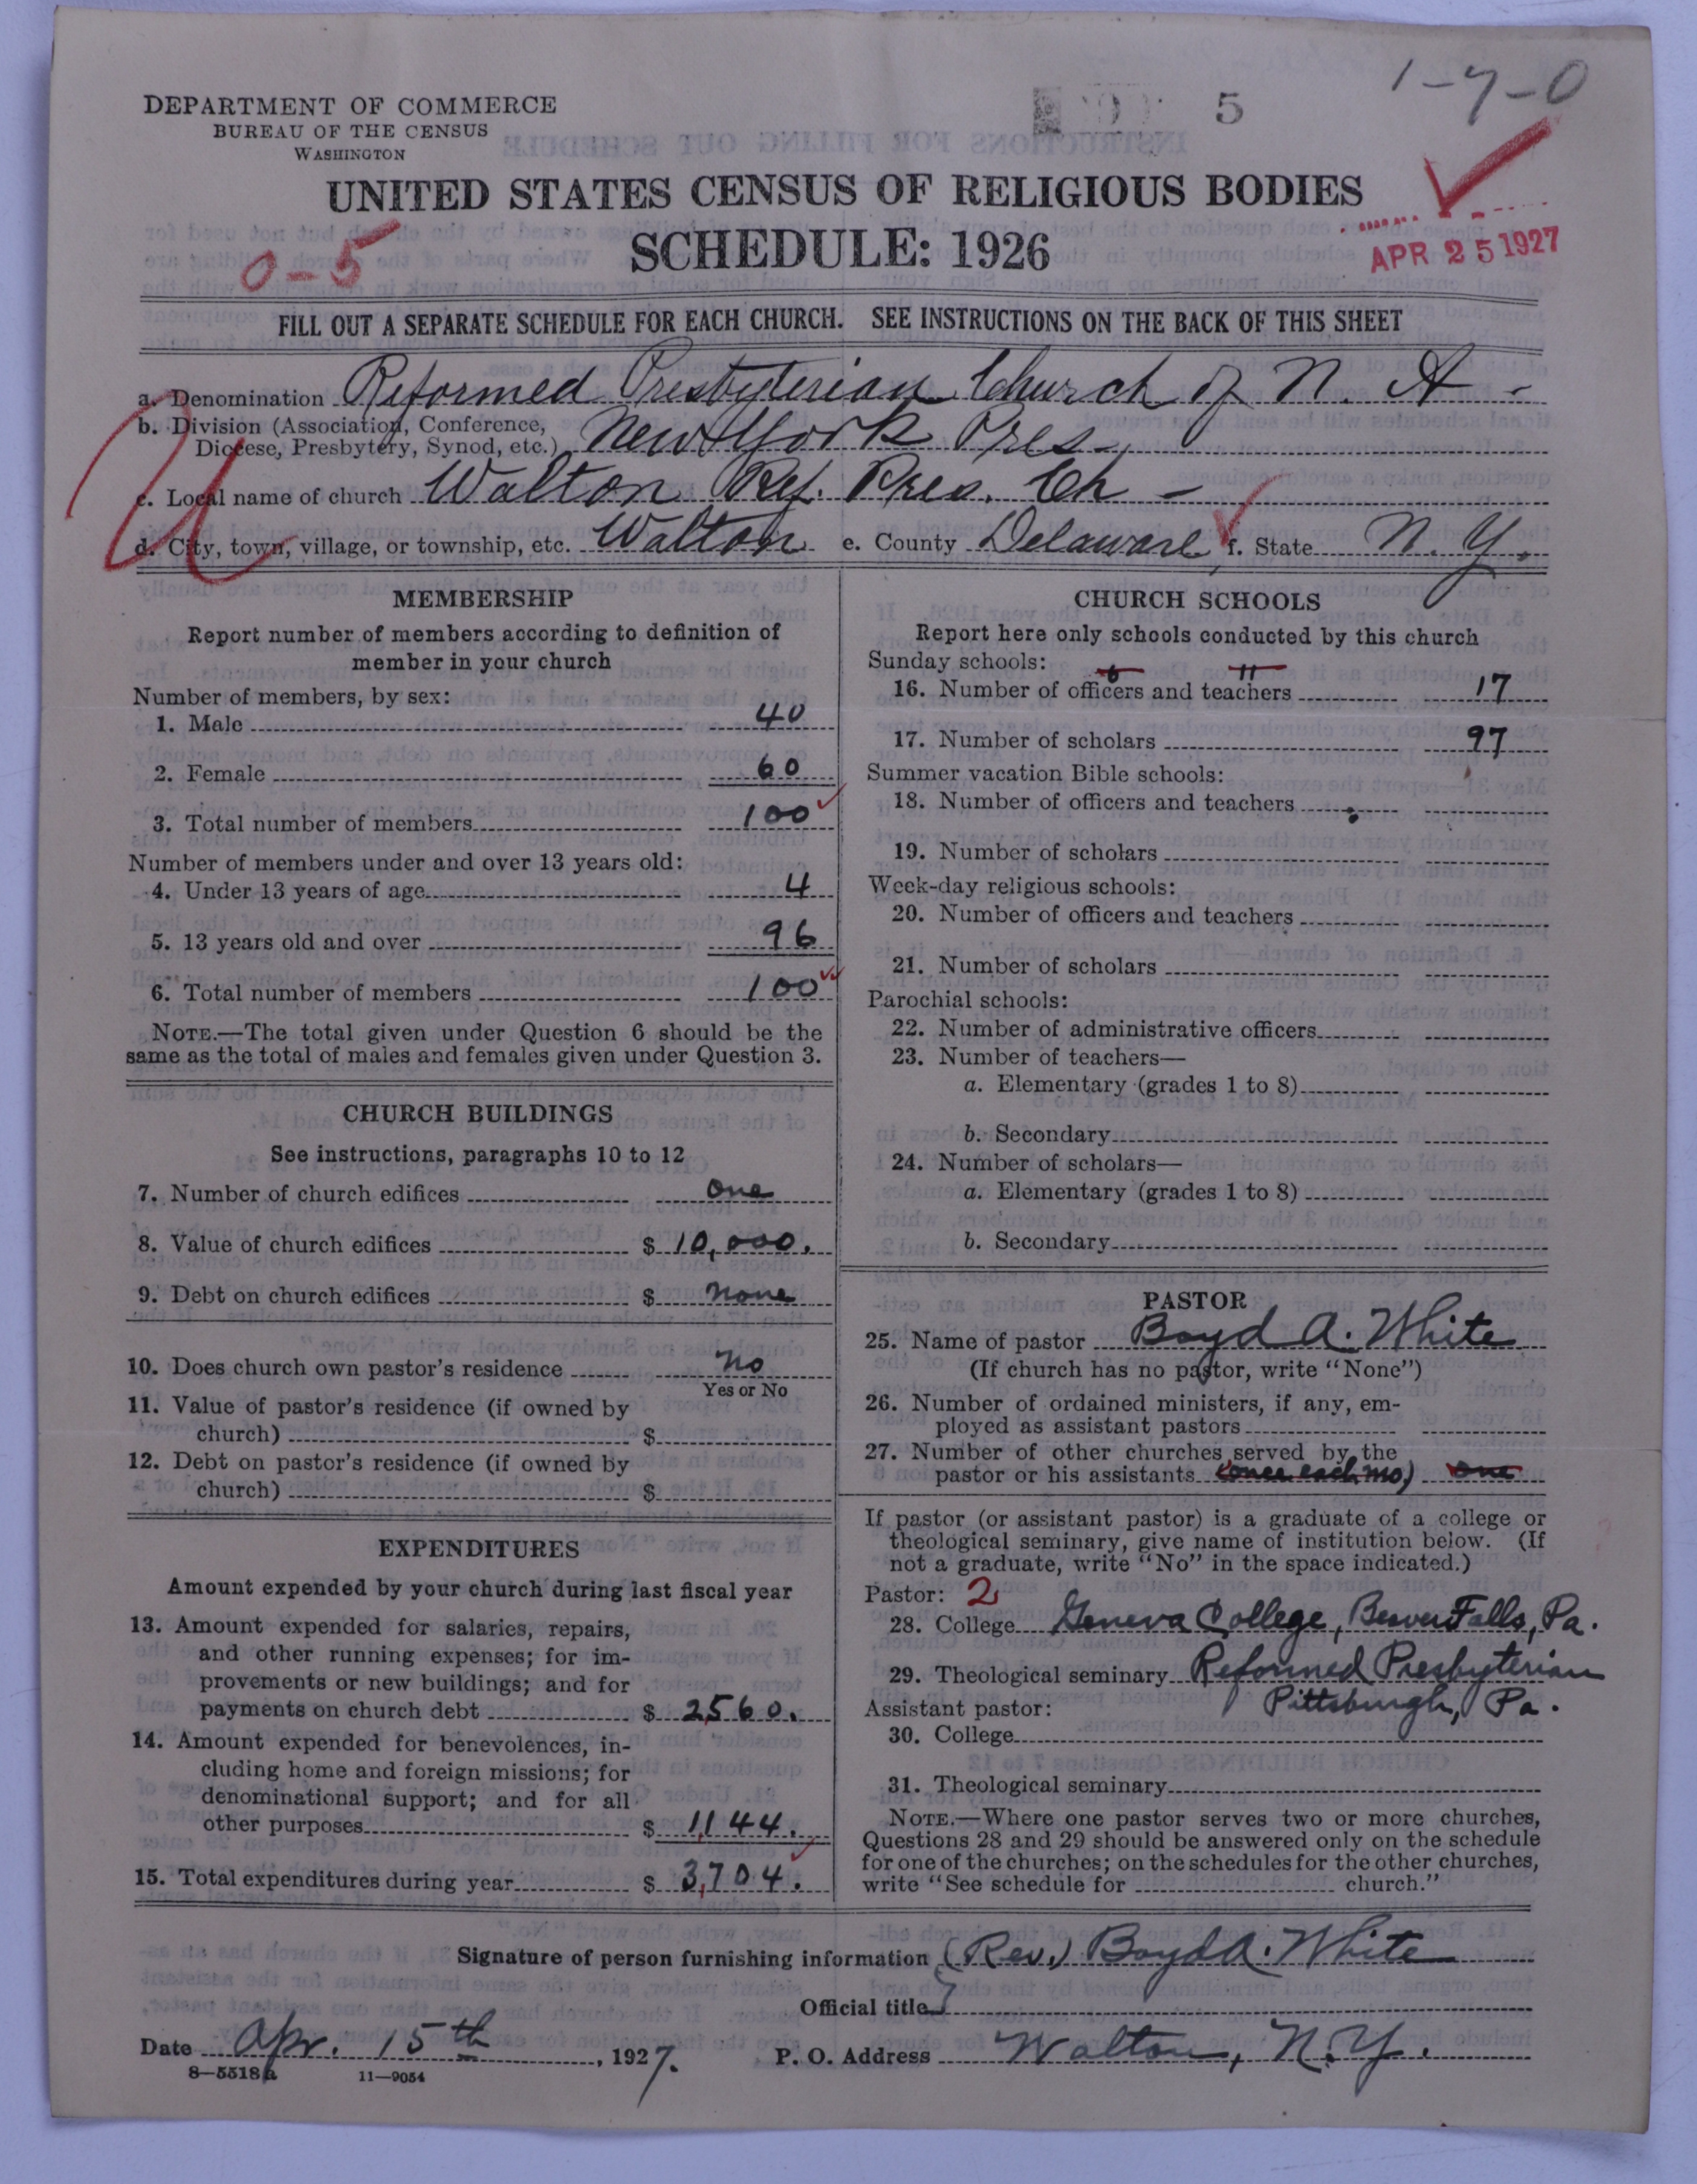 1-7-0
DEPARTMENT OF COMMERCE
BUREAU OF THE CENSUS
WASHINGTON
5
UNITED STATES CENSUS OF RELIGIOUS BODIES
SCHEDULE: 1926
0-5
APR 25 1927
FILL OUT A SEPARATE SCHEDULE FOR EACH CHURCH. SEE INSTRUCTIONS ON THE BACK OF THIS SHEET
a. Denomination Reformed Presbyterian Church of N. A -
b. Division (Association, Conference,
Diocese, Presbytery, Synod, etc.) New York Pres-
c. Local name of church Walton Ref. Pres. Ch -
d. City, town, village, or township, etc. Walton e. County Delaware, f. State N. Y.
MEMBERSHIP
Report number of members according to definition of
member in your church
Number of members, by sex:
1. Male 40
2. Female 60
3. Total number of members 100
Number of members under and over 13 years old:
4. Under 13 years of age 4
5. 13 years old and over 96
6. Total number of members 100
NOTE.—The total given under Question 6 should be the
same as the total of males and females given under Question 3.
CHURCH BUILDINGS
See instructions, paragraphs 10 to 12
7. Number of church edifices one
8. Value of church edifices $ 10,000.
9. Debt on church edifices $ none
10. Does church own pastor's residence no
Yes or No
11. Value of pastor's residence (if owned by
church) $
12. Debt on pastor's residence (if owned by
church) $
EXPENDITURES
Amount expended by your church during last fiscal year
13. Amount expended for salaries, repairs,
and other running expenses; for im-
provements or new buildings; and for
payments on church debt $ 2,560.
14. Amount expended for benevolences, in-
cluding home and foreign missions; for
denominational support; and for all
other purposes $ 1,144.
15. Total expenditures during year $ 3,704.
CHURCH SCHOOLS
Report here only schools conducted by this church
Sunday schools: 6 11
16. Number of officers and teachers 17
17. Number of scholars 97
Summer vacation Bible schools:
18. Number of officers and teachers
19. Number of scholars
Week-day religious schools:
20. Number of officers and teachers
21. Number of scholars
Parochial schools:
22. Number of administrative officers
23. Number of teachers—
a. Elementary (grades 1 to 8)
b. Secondary
24. Number of scholars—
a. Elementary (grades 1 to 8)
b. Secondary
PASTOR
25. Name of pastor Boyd A. White
(If church has no pastor, write "None")
26. Number of ordained ministers, if any, em-
ployed as assistant pastors
27. Number of other churches served by the
pastor or his assistants (once each mo) one
If pastor (or assistant pastor) is a graduate of a college or
theological seminary, give name of institution below. (If
not a graduate, write "No" in the space indicated.)
Pastor: 2
28. College Geneva College, Beaver Falls, Pa.
29. Theological seminary Reformed Presbyterian
Assistant pastor: Pittsburgh, Pa.
30. College
31. Theological seminary
NOTE.—Where one pastor serves two or more churches,
Questions 28 and 29 should be answered only on the schedule
for one of the churches; on the schedules for the other churches,
write "See schedule for church."
Signature of person furnishing information (Rev.) Boyd A. White
Official title
Date Apr. 15th, 1927. P. O. Address Walton, N.Y.
8—5518a 11—9054